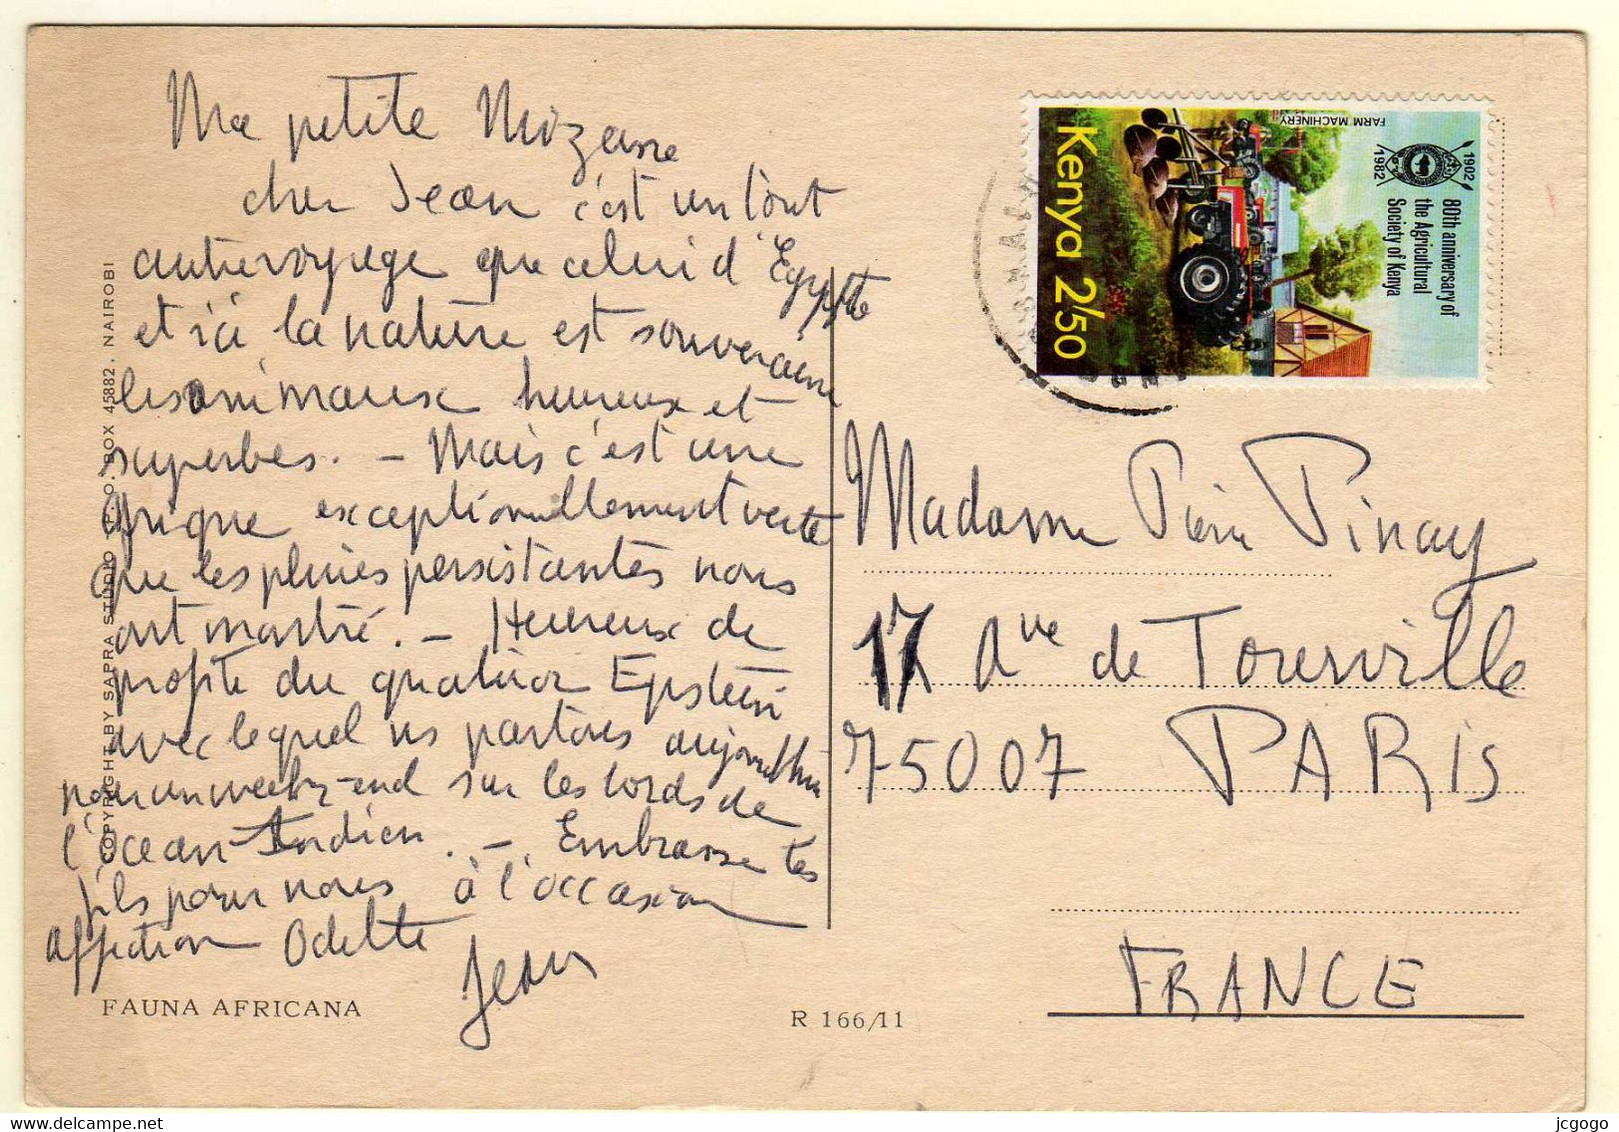 Ma petite
cher Jean c'est un tout
autre voyage que celui d'Egypte
et ici la nature est souveraine
les animaux heureux et
superbes. – Mais c'est une
afrique exceptionnellement verte
que les pluies persistantes nous
ont montré. – Heureux de
profite du quatuor Epstein
avec lequel ns partons aujourd'hui
pour un week-end sur les bords de
l'océan Indien. – Embrasse tes
fils pour nous à l'occasion
affection Odette
Jean
FAUNA AFRICANA
R 166/11
COPYRIGHT BY SAPRA STUDIO P. O. BOX 45882. NAIROBI
Kenya 2/50
FARM MACHINERY
1902
1982
80th anniversary of
the Agricultural
Society of Kenya
Madame Pierre Pinay
17 Ave de Tourville
75007 PARIS
FRANCE
delcampe.net
jcgogo